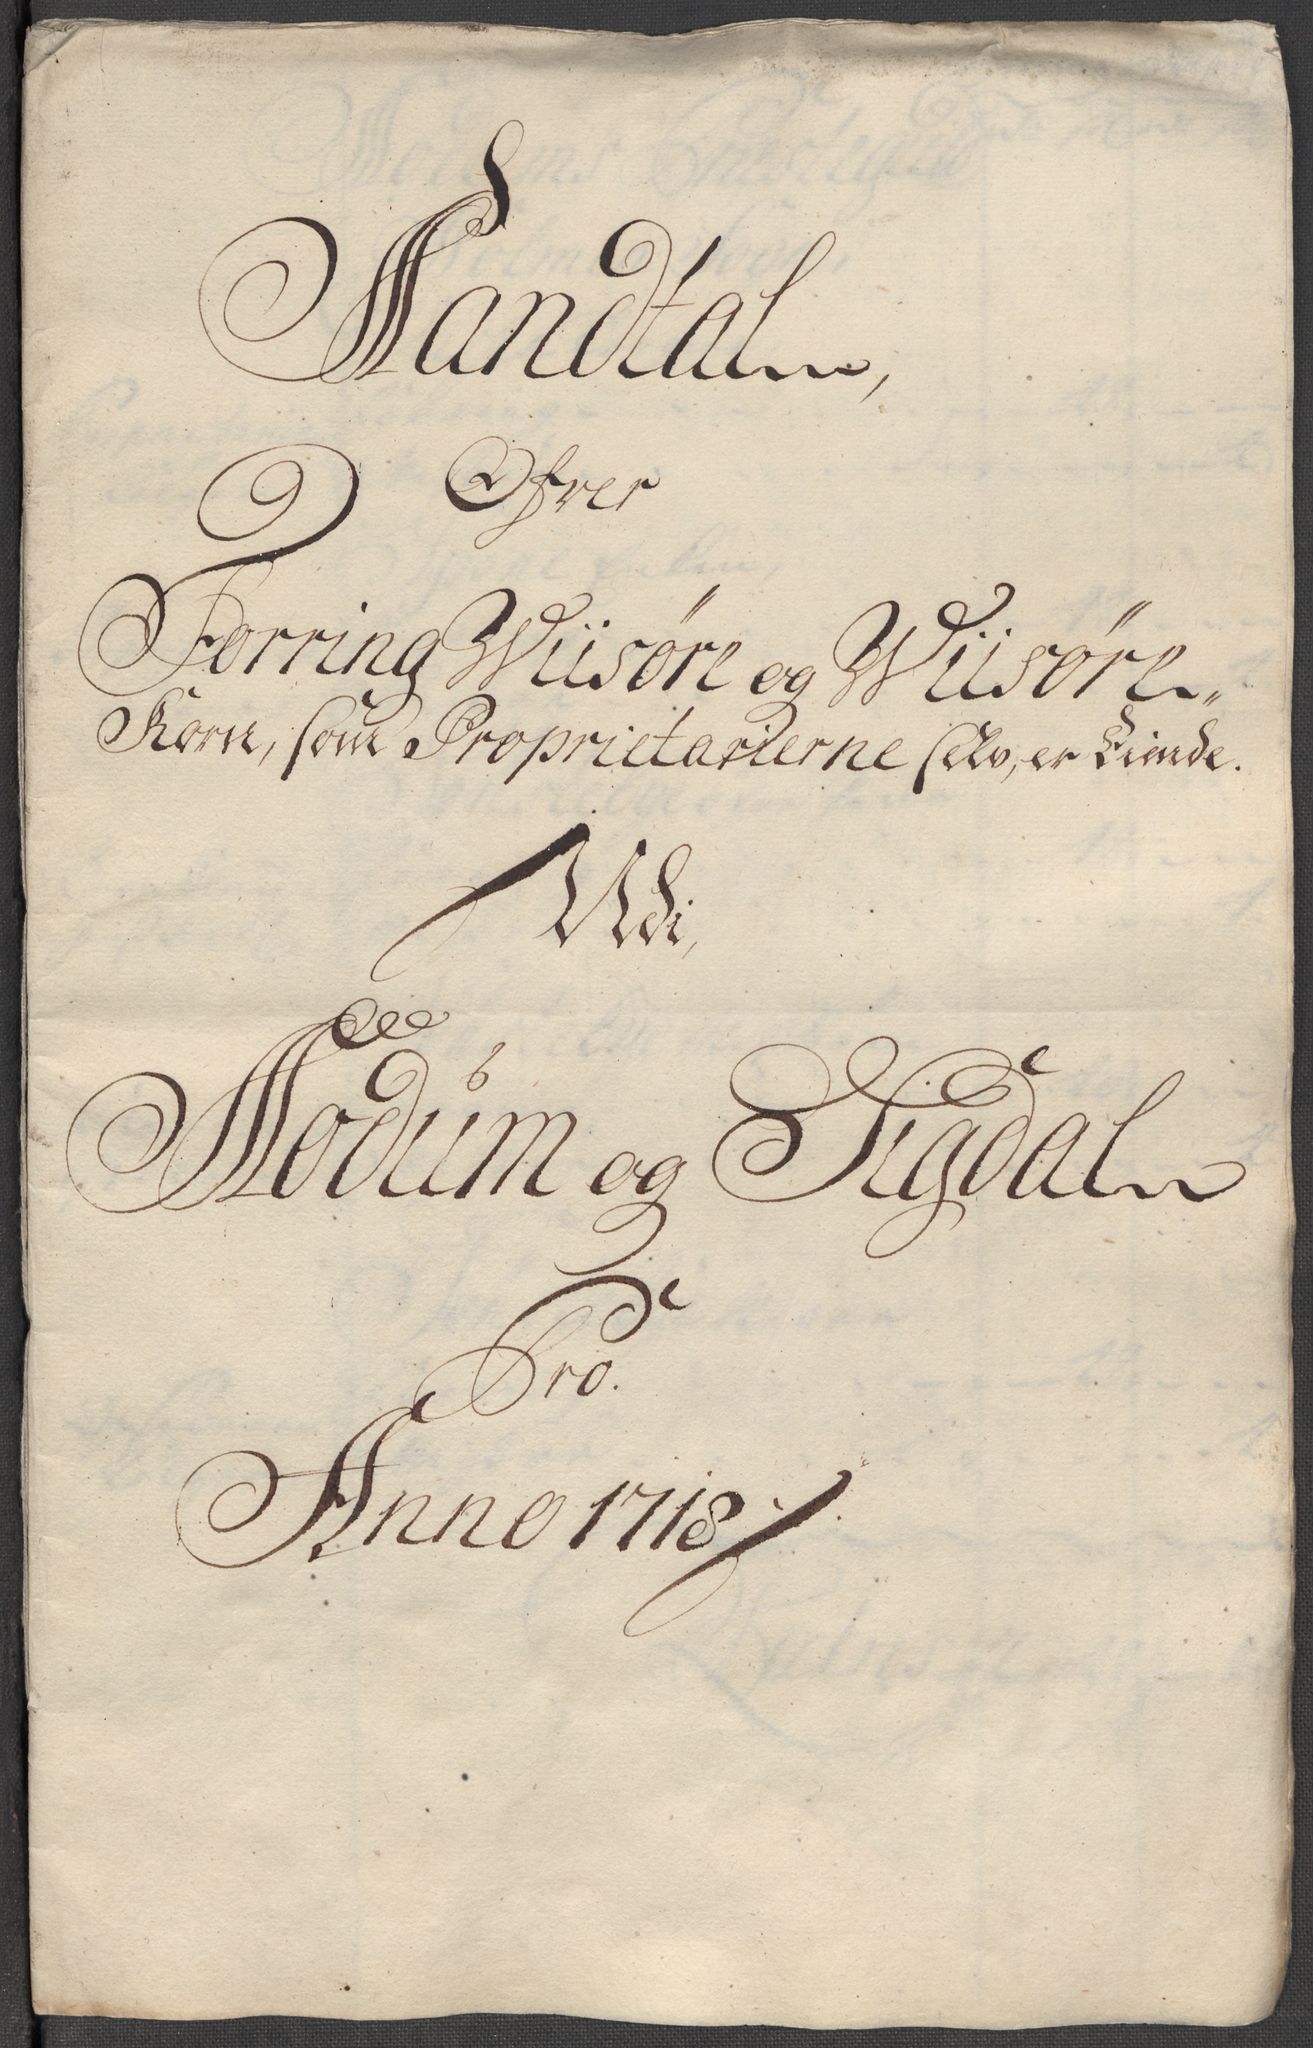 Mandtal,
Ofver
Foring Wiisøre og Wiisøre-
Korn, som Proprietarierne selv, er Eiende.
Udi,
Modum og Sigdal
Pro.
Anno 1718